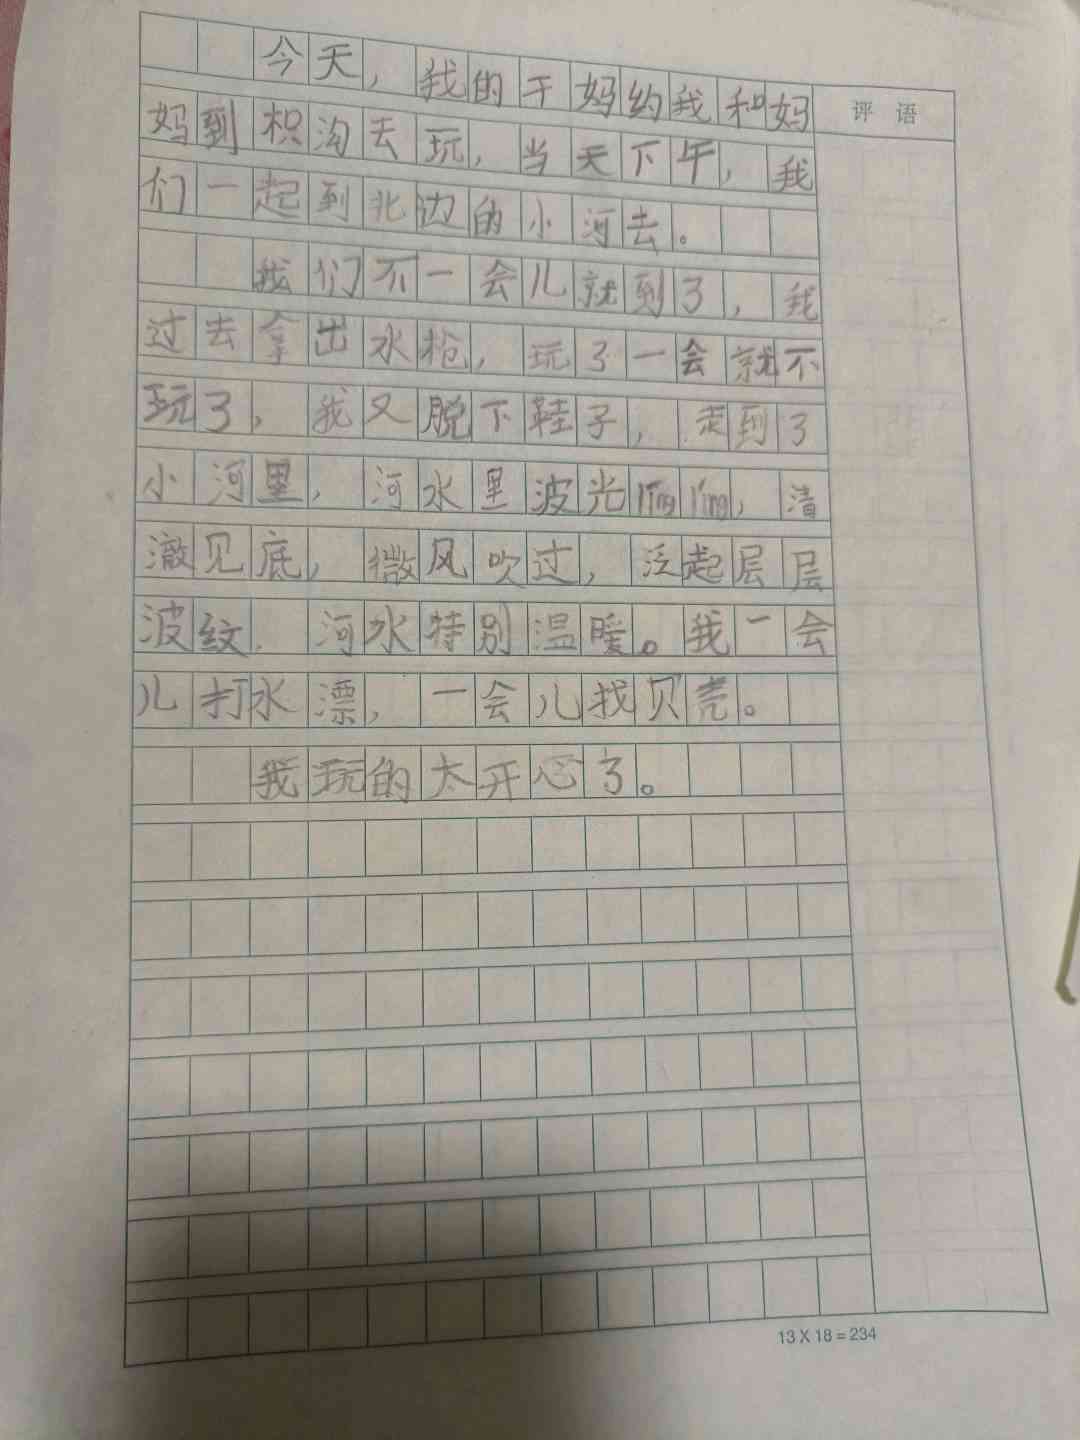 今天，我的干妈约我和妈
评语
妈到枳沟去玩，当天下午，我
们一起到北边的小河去。
我们不一会儿就到了，我
过去拿出水枪，玩了一会就不
玩了，我又脱下鞋子，走到了
小河里，河水里波光líng líng，清
澈见底，微风吹过，泛起层层
波纹，河水特别温暖。我一会
儿打水漂，一会儿找贝壳。
我玩的太开心了。
13 X 18 = 234